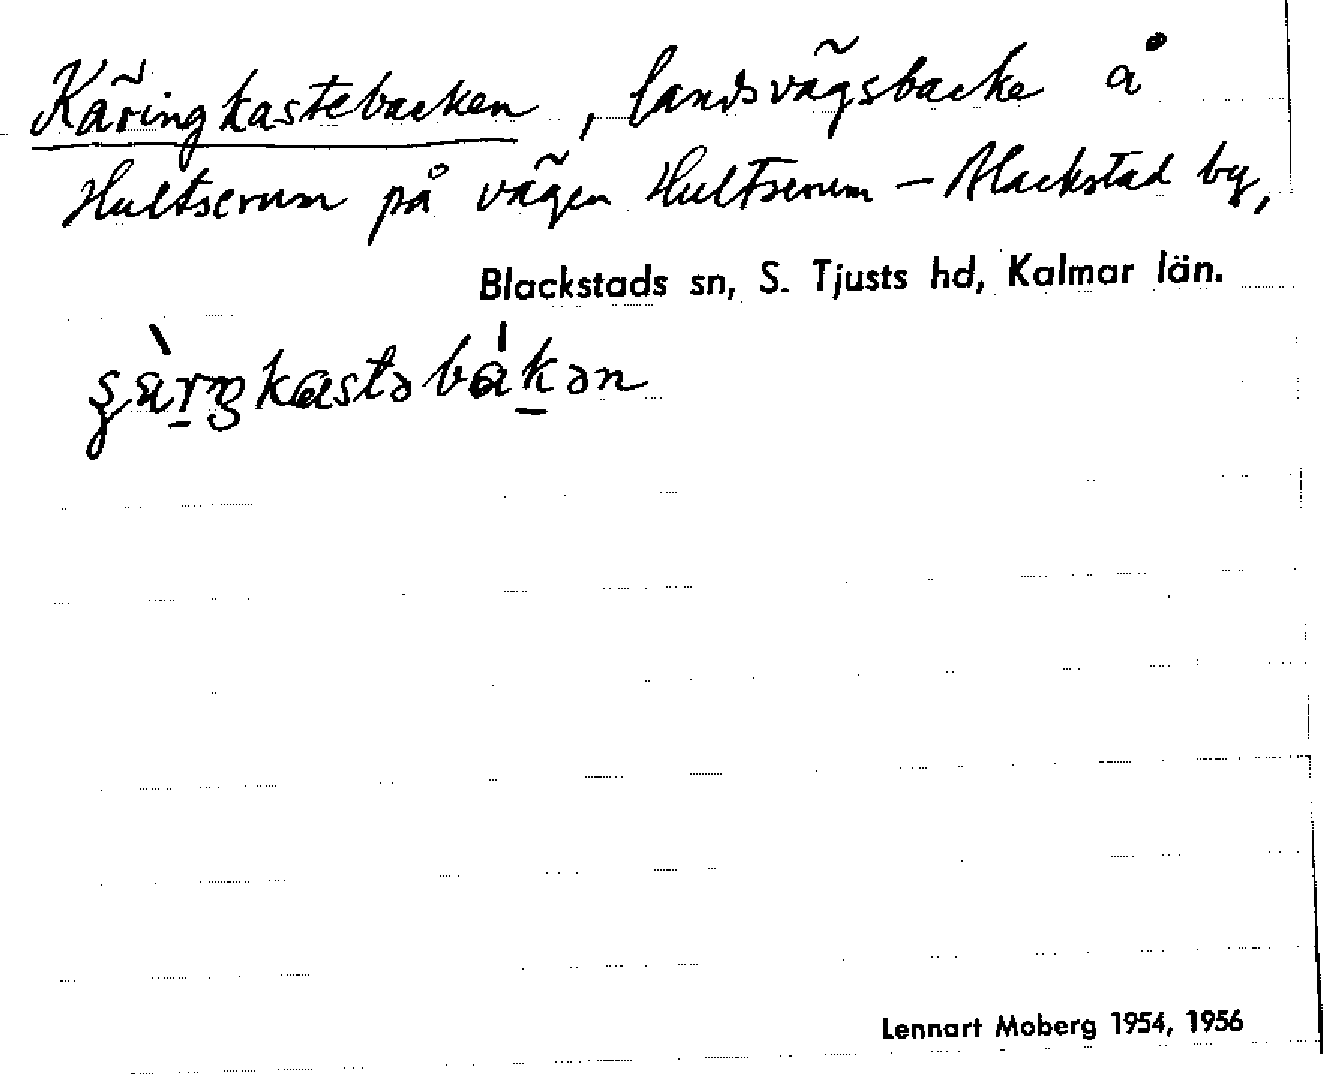 Käringkastebacken, landsvägsbacke å
Hultserum på vägen Hultserum – Blackstad by,
Blackstads sn, S. Tjusts hd, Kalmar län.
Lennart Moberg 1954, 1956